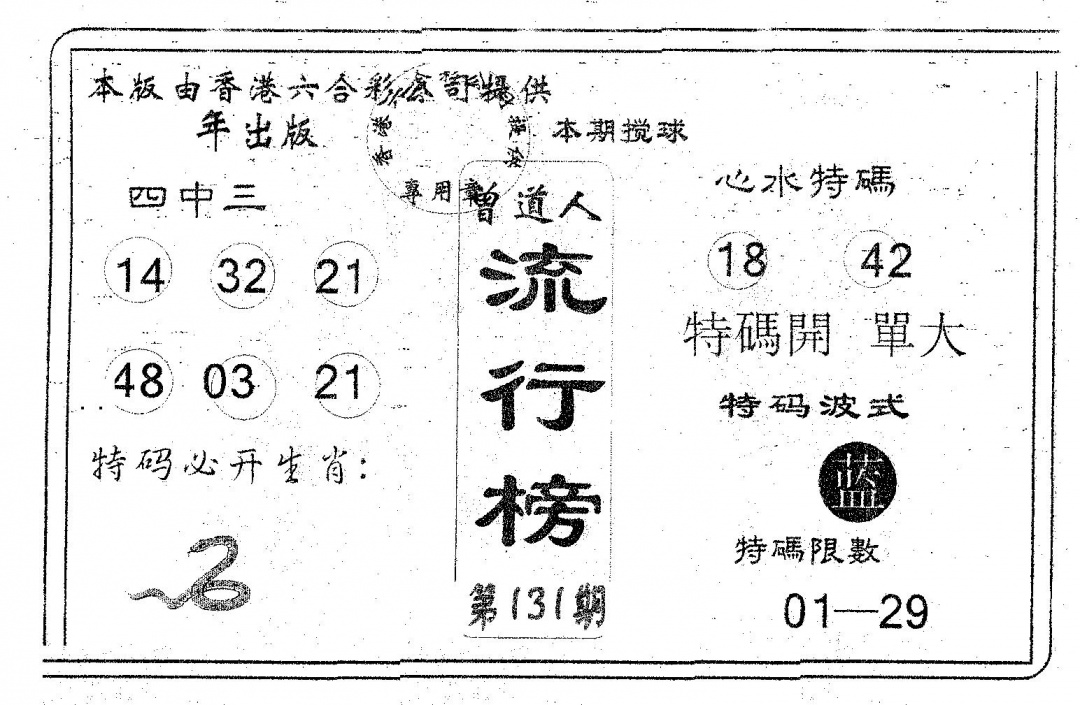 本版由香港六合彩會訂提供
年出版
本期搅球
香港
提供
專用章
四中三
14 32 21
48 03 21
特码必开生肖:
曾道人
流行榜
第131期
心水特碼
18 42
特碼開 單大
特码波式
蓝
特碼限數
01—29